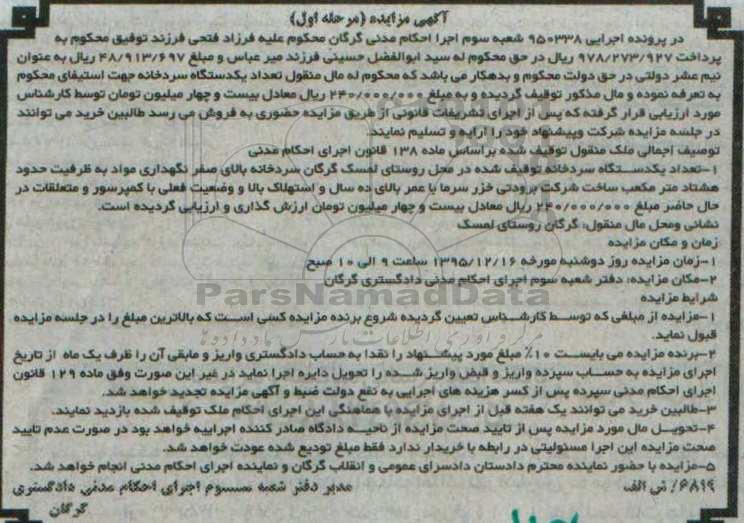 آگهی مزایده (مرحله اول)
در پرونده اجرایی ۹۵۰۳۳۸ شعبه سوم اجرا احکام مدنی گرگان محکوم علیه فرزاد فتحی فرزند توفیق محکوم به
پرداخت ۹۷۸/۲۷۳/۹۲۷ ریال در حق محکوم له سید ابوالفضل حسینی فرزند میر عباس و مبلغ ۴۸/۹۱۳/۶۹۷ ریال به عنوان
نیم عشر دولتی در حق دولت محکوم و بدهکار می باشد که محکوم له مال منقول تعداد یکدستگاه سردخانه جهت استیفای محکوم
به تعرفه نموده و مال مذکور توقیف گردیده و به مبلغ ۲۴۰/۰۰۰/۰۰۰ ریال معادل بیست و چهار میلیون تومان توسط کارشناس
مورد ارزیابی قرار گرفته که پس از اجرای تشریفات قانونی از طریق مزایده حضوری به فروش می رسد طالبین خرید می توانند
در جلسه مزایده شرکت وپیشنهاد خود را ارایه و تسلیم نمایند.
توصیف اجمالی ملک منقول توقیف شده براساس ماده ۱۳۸ قانون اجرای احکام مدنی
۱-تعداد یکدستگاه سردخانه توقیف شده در محل روستای لمسک گرگان سردخانه بالای صفر نگهداری مواد به ظرفیت حدود
هشتاد متر مکعب ساخت شرکت برودتی خزر سرما با عمر بالای ده سال و استهلاک بالا و وضعیت فعلی با کمپرسور و متعلقات در
حال حاضر مبلغ ۲۴۰/۰۰۰/۰۰۰ ریال معادل بیست و چهار میلیون تومان ارزش گذاری و ارزیابی گردیده است.
نشانی ومحل مال منقول: گرگان روستای لمسک
زمان و مکان مزایده
۱-زمان مزایده روز دوشنبه مورخه ۱۳۹۵/۱۲/۱۶ ساعت ۹ الی ۱۰ صبح
۲-مکان مزایده: دفتر شعبه سوم اجرای احکام مدنی دادگستری گرگان
ParsNamadData
شرایط مزایده
۱-مزایده از مبلغی که توسط کارشناس تعیین گردیده شروع برنده مزایده کسی است که بالاترین مبلغ را در جلسه مزایده
قبول نماید.
۲-برنده مزایده می بایست ۱۰٪ مبلغ مورد پیشنهاد را نقدا به حساب دادگستری واریز و مابقی آن را ظرف یک ماه از تاریخ
اجرای مزایده به حساب سپرده واریز و قبض واریز شده را تحویل دایره اجرا نماید در غیر این صورت وفق ماده ۱۲۹ قانون
اجرای احکام مدنی سپرده پس از کسر هزینه های اجرایی به نفع دولت ضبط و آگهی مزایده تجدید خواهد شد.
۳-طالبین خرید می توانند یک هفته قبل از اجرای مزایده با هماهنگی این اجرای احکام ملک توقیف شده بازدید نمایند.
۴-تحویل مال مورد مزایده پس از تایید صحت مزایده از ناحیه دادگاه صادر کننده اجراییه خواهد بود در صورت عدم تایید
صحت مزایده این اجرا مسئولیتی در رابطه با خریدار ندارد فقط مبلغ تودیع شده عودت خواهد شد.
۵-مزایده با حضور نماینده محترم دادستان دادسرای عمومی و انقلاب گرگان و نماینده اجرای احکام مدنی انجام خواهد شد.
۶۸۱۹/ نی الف
مدیر دفتر شعبه سوم اجرای احکام مدنی دادگستری
گرگان